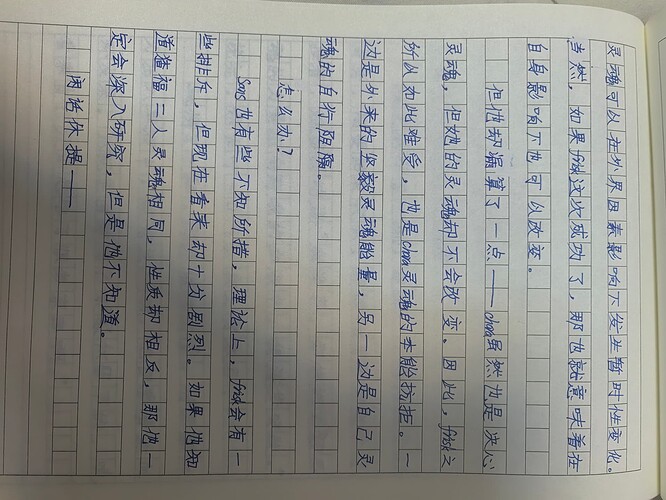 灵魂可以在外界因素影响下发生暂时性变化。
当然，如果frisk这次成功了，那也就意味着在
自身影响下也可以改变。
但他却漏算了一点——chara虽然也是决心
灵魂，但她的灵魂却不会改变。因此，frisk之
所以如此难受，也是chara灵魂的本能抗拒。一
边是外来的坚毅灵魂能量，另一边是自己灵
魂的自行阻隔。
怎么办？
Sans也有些不知所措，理论上，frisk会有一
些排斥，但现在看来却十分剧烈。如果他知
道猹福二人灵魂相同，性质却相反，那他一
定会深入研究，但是他不知道。
闲话休提——